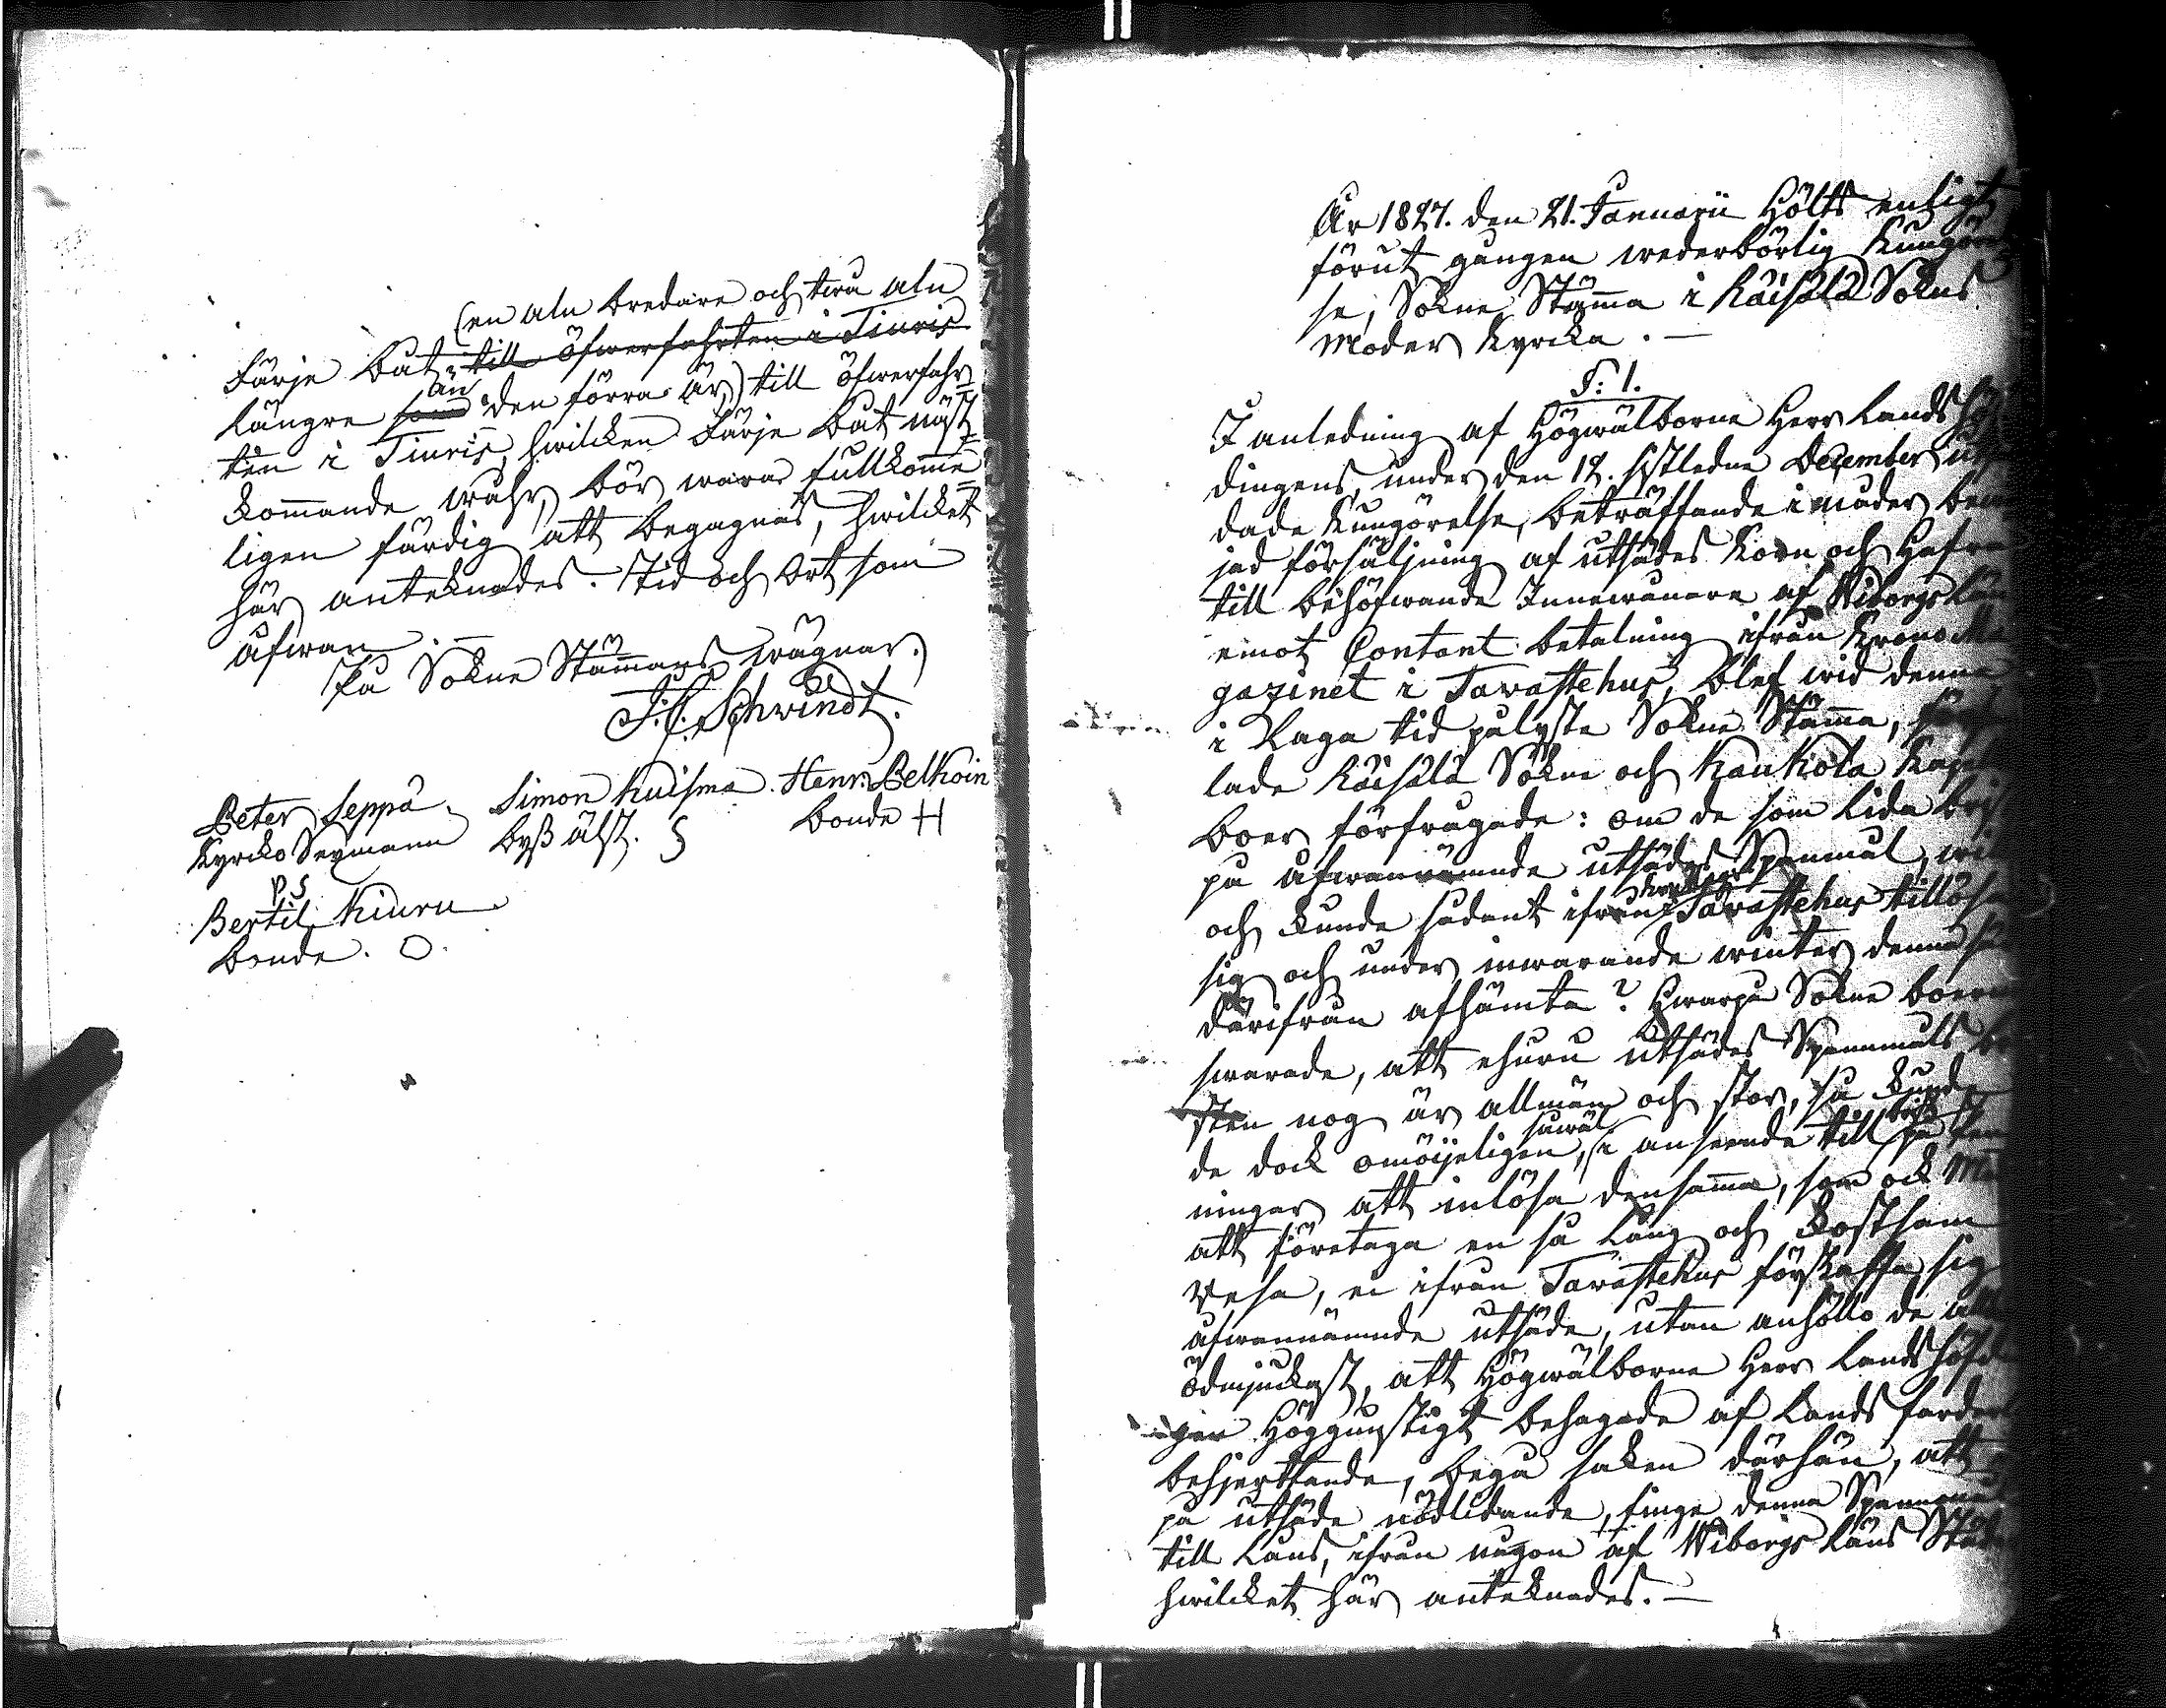 (en aln bredare och twå aln
Färje båt till öfwerfahrten i Tiuris
längre som än den förra är) till öfwerfahr=
ten i Tiuris, hwilcken Färje båt näst=
kommande wåhr, bör wara fullkome=
ligen färdig att begagnas, hwilcket
här anteknades. Tid och Ort som
åfwan. —
På Sokne Stämans wägnar.
J. C. Schwindt.
Peter Seppä. Simon Kuisma. Henr: Pelkoin
Kyrcko Sexmann byß älst. § bonde H
PS
Bertil Kiuru
bonde. O.
År 1827. den 21. Januarii Hölts enligt
förut gången wederbörlig Kungörel
se, Sokne Stäma i Räisälä Sokns
Moder Kyrcka. —
§: 1.
I anledning af Högwälborne Herr Lands Höf
dingens, under den 12. sistledne December
dade Kungörelse, beträffande i nåder
jad försäljning af utsädes Korn och Hafra
till behöfwande Innewånare af Wiborgs Län
emot Contant betalning ifrån Krono Ma
gazinet i Tavastehus, blef wid denna
i Laga tid pålyste Sokne Stäma,
lade Räisälä Sokne och Kaukola
boer förfrågade: om de som lida brist
på åfwannämnde utsädes Spanmål,
och kunde sådant ifrån Tavastehus tillösa
sig och under inwarande winter denna
därifrån afhämta? Hwarpå Sokne boerne
swarade, att ehuru utsädes Spannmåls
sten nog är allmän och stor, så kunde
de dock omöijeligen, såwäl i anseende till brist på
ningar att inlösa densamma, som ock
att företaga en så lång och kostsam
resa, ei ifrån Tavastehus förskaffa sig
åfwannämnde utsäde, utan anhöllo de
ödmjuckast, att Högwälborne Herr Lands höfd
gen Höggunstigt behagade af Lands
behjerttande, bega saken därhän, att
på utsäde nödlidande, finge denna Spannmål
till Låns, ifrån någon af Wiborgs Läns
hwilcket här anteknades. —